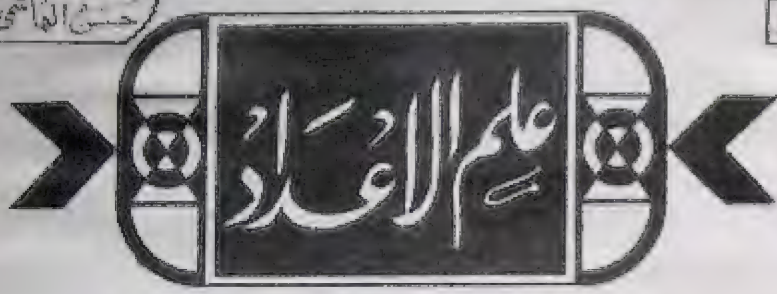 حسن الہاشمی
علم الاعداد